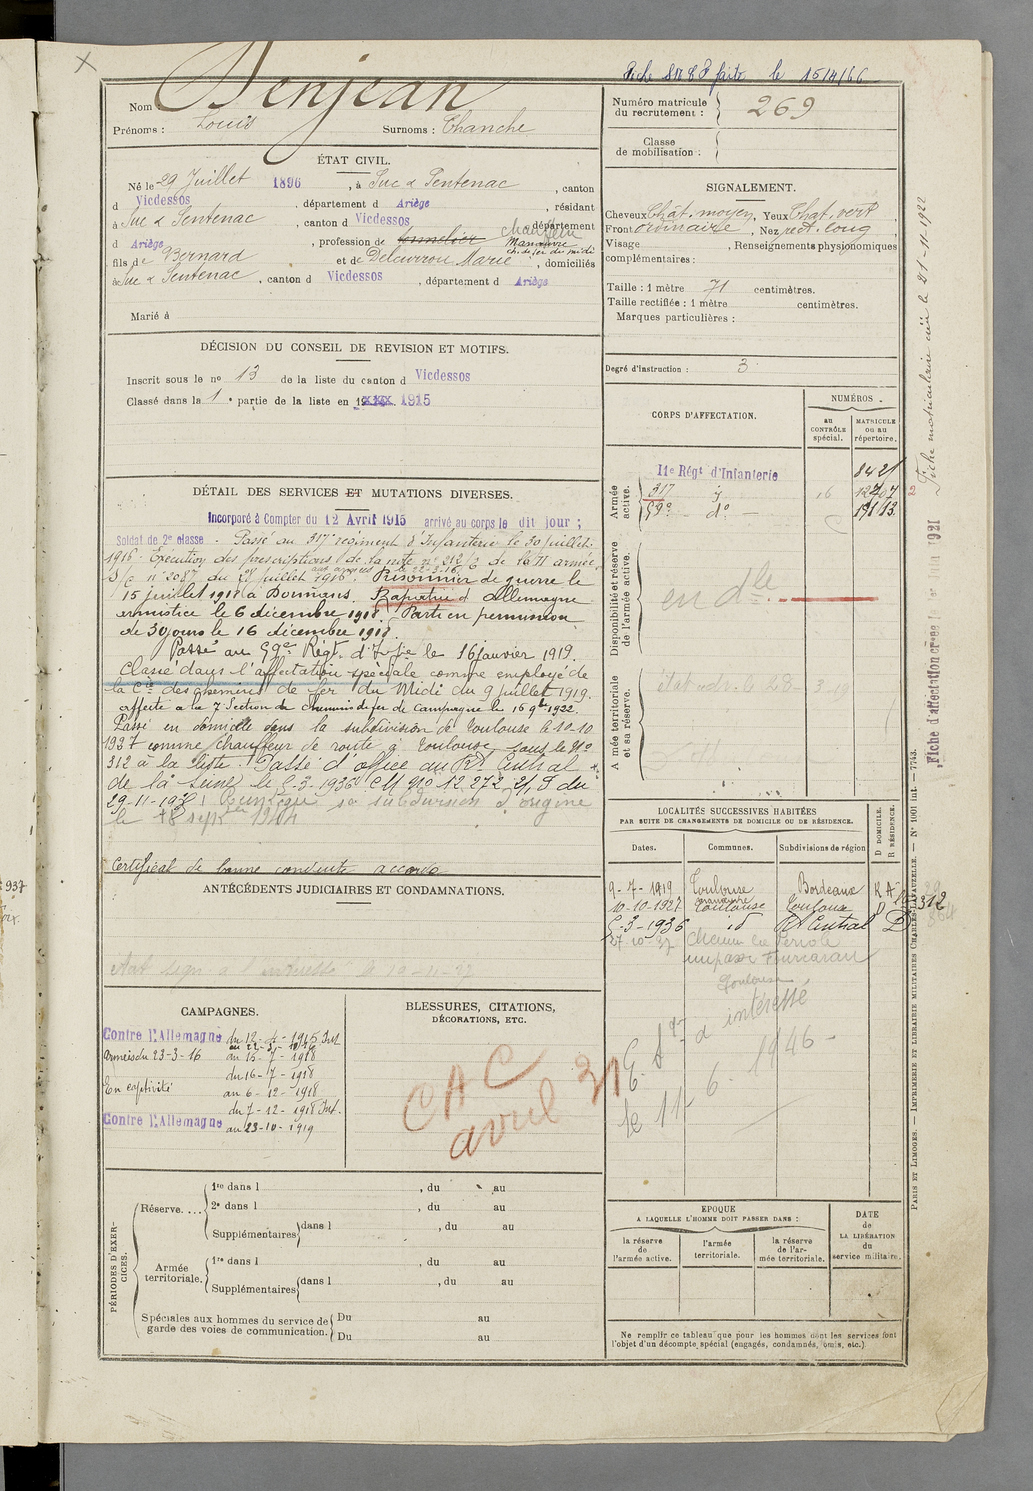 Fiche faite le 15/4/66
Nom : Denjean
Prénoms : Louis Surnoms : Chanche
Numéro matricule du recrutement : 269
Classe de mobilisation :
ÉTAT CIVIL.
Né le 29 Juillet 1896, à Suc & Sentenac, canton
d Vicdessos, département d Ariège, résidant
à Suc & Sentenac, canton d Vicdessos, département
d Ariège, profession de Manœuvre ch. de fer du midi
fils de Bernard et de Marie, domiciliés
à Suc & Sentenac, canton d Vicdessos, département d Ariège
Marié à
SIGNALEMENT.
Cheveux Chât. moyen, Yeux Chat. vert,
Front ordinaire, Nez rect. long,
Visage , Renseignements physionomiques
complémentaires :
Taille : 1 mètre 71 centimètres.
Taille rectifiée : 1 mètre centimètres.
Marques particulières :
Degré d'instruction : 3
DÉCISION DU CONSEIL DE REVISION ET MOTIFS.
Inscrit sous le no 13 de la liste du canton d Vicdessos
Classé dans la 1e partie de la liste en 1915
CORPS D'AFFECTATION.
NUMÉROS
au CONTRÔLE spécial.
MATRICULE ou au répertoire.
Armée active.
11e Régt d'Infanterie 8421
317 16
59e do
Disponibilité et réserve de l'armée active.
en dle
Armée territoriale et sa réserve.
DÉTAIL DES SERVICES ET MUTATIONS DIVERSES.
Incorporé à Compter du 12 Avril 1915 arrivé au corps le dit jour ;
Soldat de 2e classe - Passé au 317e régiment d'Infanterie le 30 juillet
1916 - Exécution des prescriptions de la note no 212/3 de la II armée
no 2087 du 21 juillet 1916. Prisonnier de guerre le
15 juillet 1918 à Dormans. Rapatrié d'Allemagne
armistice le 6 décembre 1918. Parti en permission
de 30 jours le 16 décembre 1918.
Passé au 59e Régt. d'Infie le 16 janvier 1919.
Classé dans l'affectation spéciale comme employé de
la Cie des chemins de fer du Midi du 9 juillet 1919.
affecté à la 7 Section de chemins de fer de Campagne le 16 9bre 1922.
Passé en domicile dans la subdivision de Toulouse le 10-10
1927 comme chauffeur de route à Toulouse, sous le No
312 à la liste. Passé d'office au Rt Central
de la Seine le 5-3-1936 CM No 12.272
sa subdivision d'origine
le 18 sept 1944
Certificat de bonne conduite accordé
ANTÉCÉDENTS JUDICIAIRES ET CONDAMNATIONS.
LOCALITÉS SUCCESSIVES HABITÉES
PAR SUITE DE CHANGEMENTS DE DOMICILE OU DE RÉSIDENCE.
Dates. Communes. Subdivisions de région D DOMICILE. R RÉSIDENCE.
9-7-1919 Toulouse Bordeaux R
10-10-1927 Toulouse Toulouse D 312
5-3-1936 id Rt Central D
27-10-37
Toulouse
à intéressé
le 11-6-1946
CAMPAGNES.
Contre l'Allemagne du 12-4-1915 Int
armées du 23-3-16 au 15-7-1918
En captivité du 16-7-1918
au 6-12-1918
Contre l'Allemagne du 7-12-1918 Int.
au 23-10-1919
BLESSURES, CITATIONS,
DÉCORATIONS, ETC.
CAC
avril 31
PÉRIODES D'EXERCICES.
Réserve.... 1re dans l , du au
2e dans l , du au
Supplémentaires dans l , du au
Armée territoriale. 1re dans l , du au
Supplémentaires dans l , du au
Spéciales aux hommes du service de garde des voies de communication. Du au
Du au
EPOQUE
A LAQUELLE L'HOMME DOIT PASSER DANS :
la réserve de l'armée active.
l'armée territoriale.
la réserve de l'armée territoriale.
DATE de LA LIBÉRATION du service militaire.
Ne remplir ce tableau que pour les hommes dont les services font
l'objet d'un décompte spécial (engagés, condamnés, omis, etc.)
Fiche matriculaire créée le 21-11-1922
Fiche d'affectation créée le 1er Juin 1921
PARIS ET LIMOGES. — IMPRIMERIE ET LIBRAIRIE MILITAIRES CHARLES-LAVAUZELLE. — No 1001 int. — 7743.
937